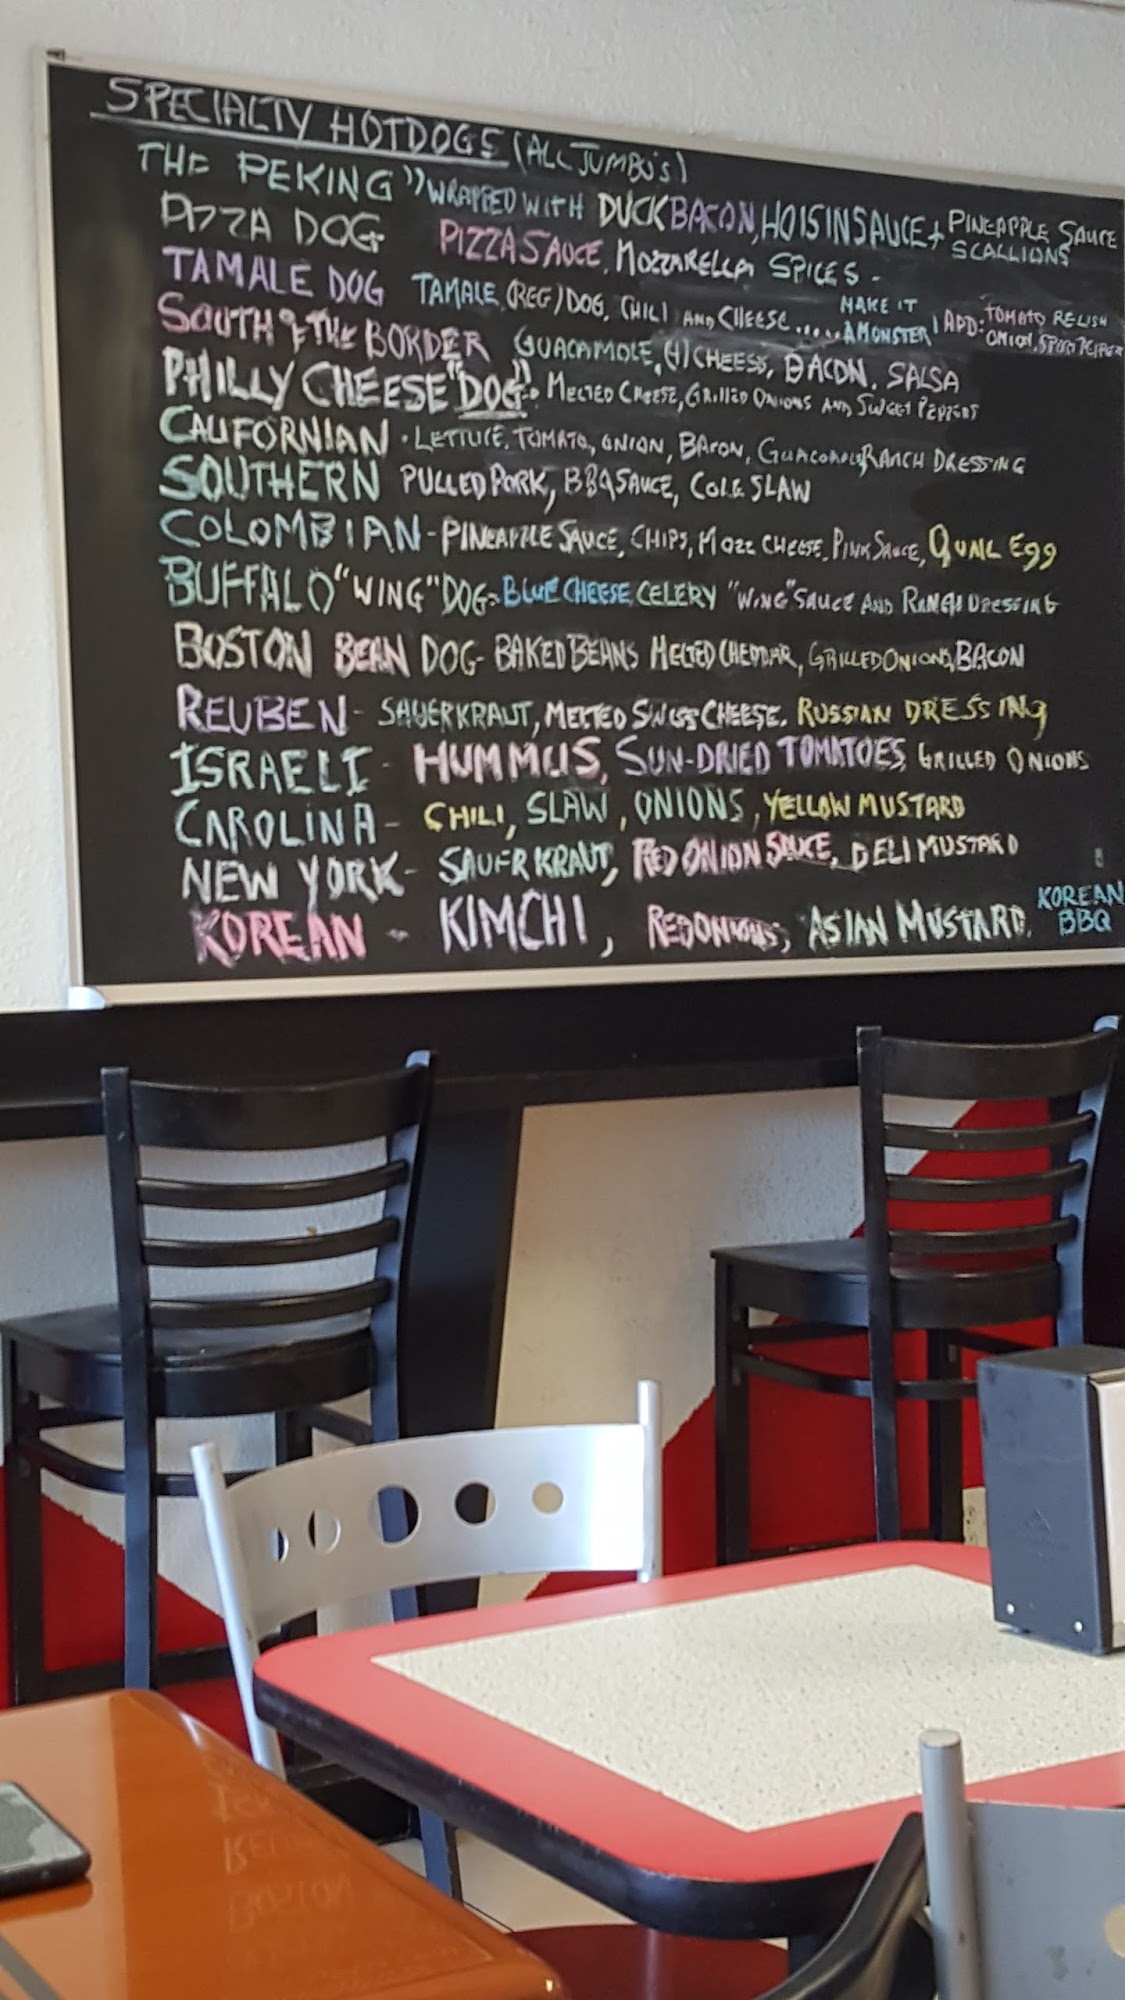 SPECIALTY HOTDOGS (ALL JUMBO'S)
THE PEKING" WRAPPED WITH DUCK BACON, HOISIN SAUCE + PINEAPPLE SAUCE
SCALLIONS
PIZZA DOG PIZZA SAUCE, MOZZARELLA, SPICES -
TAMALE DOG TAMALE (REG) DOG, CHILI AND CHEESE...... MAKE IT
A MONSTER ADD: TOMATO RELISH
ONION, SPORT PEPPER
SOUTH OF THE BORDER GUACAMOLE, (4) CHEESE, BACON, SALSA
PHILLY CHEESE "DOG" MELTED CHEESE, GRILLED ONIONS AND SWEET PEPPERS
CALIFORNIAN - LETTUCE, TOMATO, ONION, BACON, GUACAMOLE, RANCH DRESSING
SOUTHERN PULLED PORK, BBQ SAUCE, COLE SLAW
COLOMBIAN - PINEAPPLE SAUCE, CHIPS, MOZZ CHEESE, PINK SAUCE, QUAIL EGG
BUFFALO "WING" DOG - BLUE CHEESE, CELERY "WING" SAUCE AND RANCH DRESSING
BOSTON BEAN DOG - BAKED BEANS MELTED CHEDDAR, GRILLED ONIONS, BACON
REUBEN - SAUERKRAUT, MELTED SWISS CHEESE, RUSSIAN DRESSING
ISRAELI - HUMMUS, SUN-DRIED TOMATOES, GRILLED ONIONS
CAROLINA - CHILI, SLAW, ONIONS, YELLOW MUSTARD
NEW YORK - SAUERKRAUT, RED ONION SAUCE, DELI MUSTARD
KOREAN - KIMCHI, RED ONIONS, ASIAN MUSTARD, KOREAN
BBQ